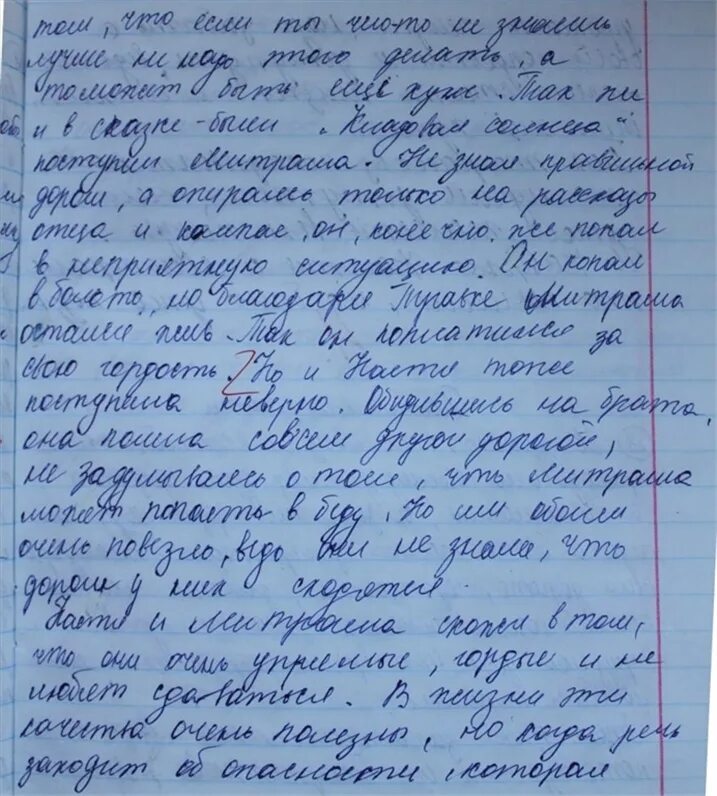 том, что если ты что-то не знаешь
лучше не надо этого делать, а
то может быть ещё хуже. Так же
и в сказке-были „Кладовая солнца“
поступил Митраша. Не зная правильной
дороги, а опираясь только на рассказы
отца и компас, он, конечно же попал
в неприятную ситуацию. Он попал
в болото, но благодаря Травке Митраша
остался жив. Так он поплатился за
свою гордость. Но и Настя тоже
поступила неверно. Обидевшись на брата,
она пошла совсем другой дорогой,
не задумываясь о том, что Митраша
может попасть в беду. Но им обоим
очень повезло, ведь они не знали, что
дороги у них сходятся.
Настя и Митраша схожи в том,
что они очень упрямые, гордые и не
любят сдаваться. В жизни эти
качества очень полезны, но когда речь
заходит об опасности, которая